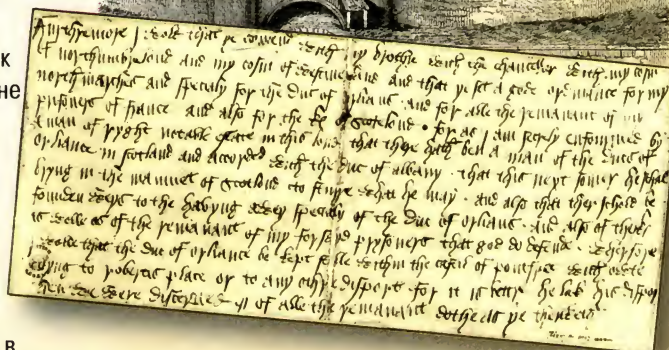 к
не
Furthermore I wold that ye comend with my brothre with the chanceller with my cosin
of northumbrelond and my cosin of westmerland and that ye set a gode ordinance for my
north marches and specialy for the Duc of Orlians and for alle the remanant of my
prisoners of France and also for the K of Scotelond . for as I am secrely enfourmed by
a man of ryght notable estate in this lond that there hath ben a man of the Ducs of
Orliance in Scotland and accorded with the Duc of Albany . that this next somer he schal
bryng in the mamuet of Scotlond to sturre what he may . and also that ther schold be
founden weys to the havyng awey specialy of the Duc of Orlians . and also of the K
as welle as of the remanant of my forsayd prysoners that god do defende . wherfore
I wolle that the Duc of Orliance be kept stille withyn the castil of pontfret with owte
goyng to Robertis place or to any othre disport for it is bettre he lak his disport
then we were disceyved . of alle the remanant dothe as ye thenketh
в